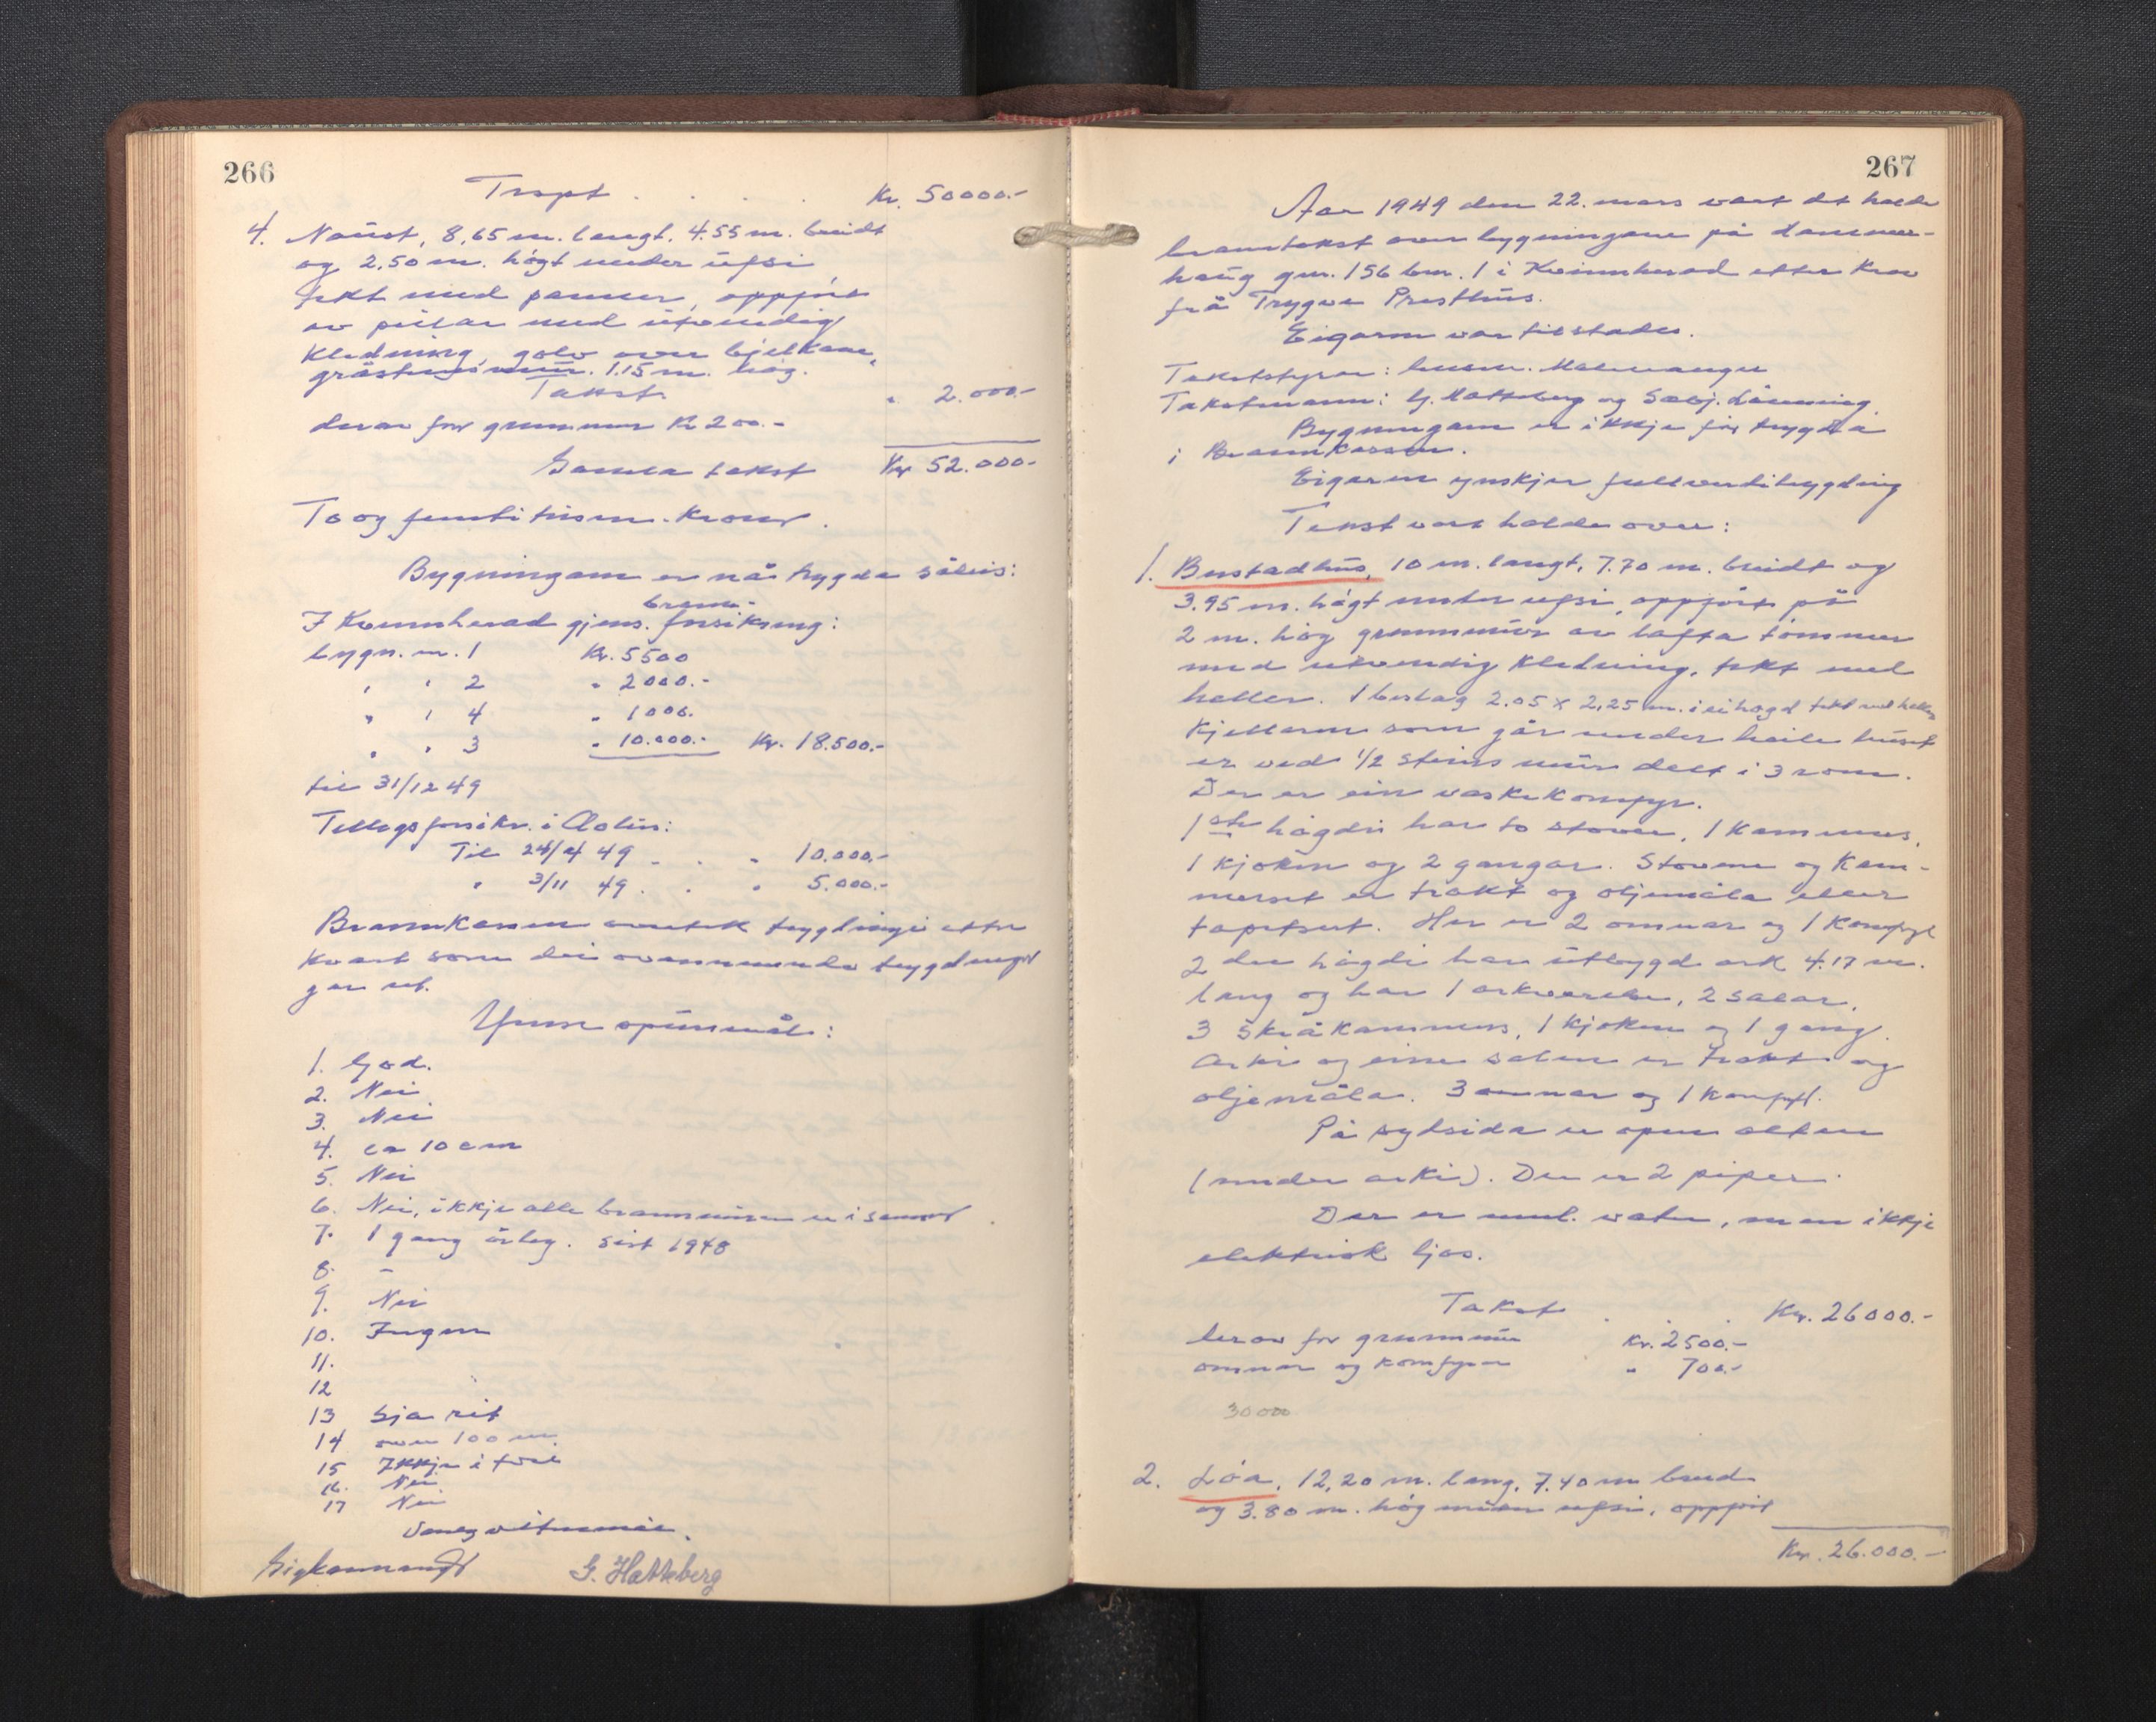 266
Trspt . . . . Kr. 50000.-
4. Naust, 8,65 m. langt, 4.55 m. breidt
og 2.50 m. högt under ufsi
tekt med panner, oppfört
av pilar med utvendig
kledning, golv over bjelkane,
gråsteinsmur 1.15 m. høg.
Takst " 2.000.-
derav for grunnmur Kr 200.-
Samla takst Kr 52.000.-
To og femti tusen - Kroner.
Bygningane er nå trygda såleis:
I Kvinnherad gjens. brann-
forsikring:
bygn. nr. 1 Kr. 5500
" " 2 " 2000.-
" " 4 " 1000.
" " 3 " 10.000.- Kr. 18.500.-
til 31/12 49
Tilleggsforsikr. i Aolus:
Til 24/4 49 . . " 10.000.-
" 3/11 49 . . " 5.000.-
Brannkassen overtek trygdingi etter
kvart som dei ovannemnde trygdingar
gar ut.
Ymse spursmål:
1. God.
2. Nei
3. Nei
4. ca 10 cm
5. Nei
6. Nei, ikkje alle brannmurar er i
7. 1 gang årleg. sist 1948
8. -
9. Nei
10. Ingen
11.
12
13 Sja rit
14 over 100 m.
15 Ikkje i
16. Nei
17 Nei
G. Hatteberg
267
Aar 1949 den 22. mars vart det halde
branntakst over bygningane på
haug gnr. 156 bnr. 1 i Kvinnherad etter krav
frå Trygve Presthus.
Eigaren var tilstades.
Takststyrar: lensm. Malmanger
Takstmenn: G. Hatteberg og
Bygningane er ikkje før trygda
i Brannkassen.
Eigaren ynskjer fullverditrygding
Takst vart halden over:
1. Bustadhus, 10 m. langt, 7.70 m. breidt og
3.95 m. högt under ufsi, oppført på
2 m. høg grunnmur av lafta tømmer
med utvendig kledning, tekt med
heller. 1 bislag 2.05 x 2,25 m. i ei høgd tekt med heller
Kjellaren som går under heile huset
er ved 1/2 steins mur delt i 3 rom.
Der er ein vaskekomfyr.
1ste høgdi har to stover, 1 kammers,
1 kjøken og 2 gangar. Stovene og kam-
merset er trekt og oljemåla eller
tapetsert. Her er 2 omnar og 1 komfyr
2 dre høgdi har utbygd ark 4.17 m.
lang og har 1 arkverelse, 2 salar,
3 skråkammers, 1 kjøken og 1 gang.
Arki og eine salen er trekt og
oljemåla. 3 omnar og 1 komfyr.
På sydsida er open altan
(under arki). Der er 2 piper.
Der er innl. vatn, men ikkje
elektrisk ljos.
Takst . . . Kr. 26000.-
herav for grunnmur Kr. 2500.-
omnar og komfyrar " 700.-
30000
2. Löa, 12,20 m. lang, 7.40 m breid
og 3.80 m. høg under ufsi, oppført
Kr. 26.000.-